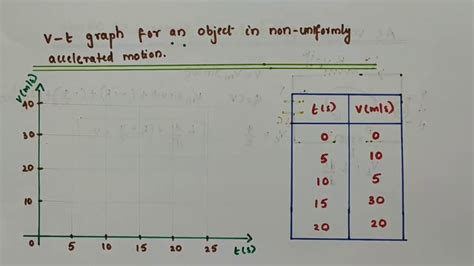 v-t graph for an object in non-uniformly
accelerated motion.
v(m/s)
40
30
20
10
0 5 10 15 20 25 t(s)
t(s) v(m/s)
0 0
5 10
10 5
15 30
20 20